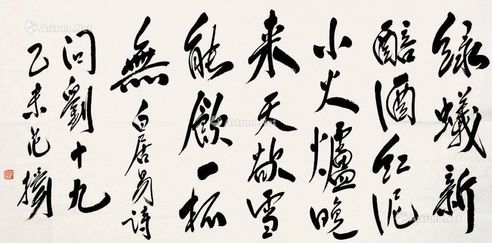 绿蟻新
醅酒红泥
小火爐晚
来天欲雪
能飲一杯
無 白居易詩
问劉十九
乙未范
Artron.Net